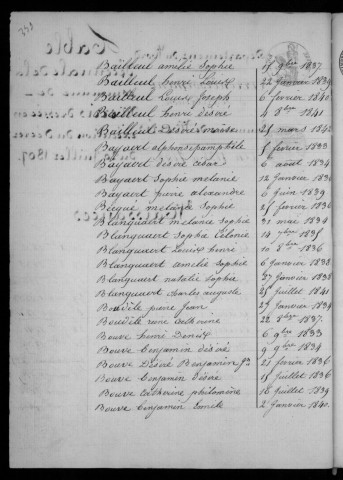 Bailleul amelie Sophie 15 9bre 1837
Bailleul henri Louis 22 Janvier 1839
Bailleul Louis Joseph 6 fevrier 1840
Bailleul henri désiré 4 8bre 1841
Bailleul Désiré 25 mars 1842
Bayaert alphonse pamphile 5 fevrier 1833
Bayaert désiré César 6 août 1834
Bayaert Sophie melanie 12 Janvier
Bayaert pierre alexandre 6 Juin 1839
Becque melanie Sophie 25 fevrier 1836
Blanquaert melanie Sophie 31 mai 1834
Blanquaert Sophie Celonie 14 7bre 1835
Blanquaert Louis henri 10 8bre 1836
Blanquaert amelie Sophie 6 Janvier 1838
Blanquaert natalie Sophie 27 Janvier 1838
Blanquaert charles auguste 25 Juillet 1841
Boudéle pierre Jean 25 Janvier 1834
Boudéle catherine 22 8bre 1837
Bouve henri Denis 6 9bre 1833
Bouve Benjamin désiré 9 9bre 1834
Bouve Désiré Benjamin 21 fevrier 1836
Bouve Benjamin désiré 15 Juillet 1836
Bouve Catherine philomène 16 Juillet 1839
Bouve Benjamin Emile 2 Janvier 1840